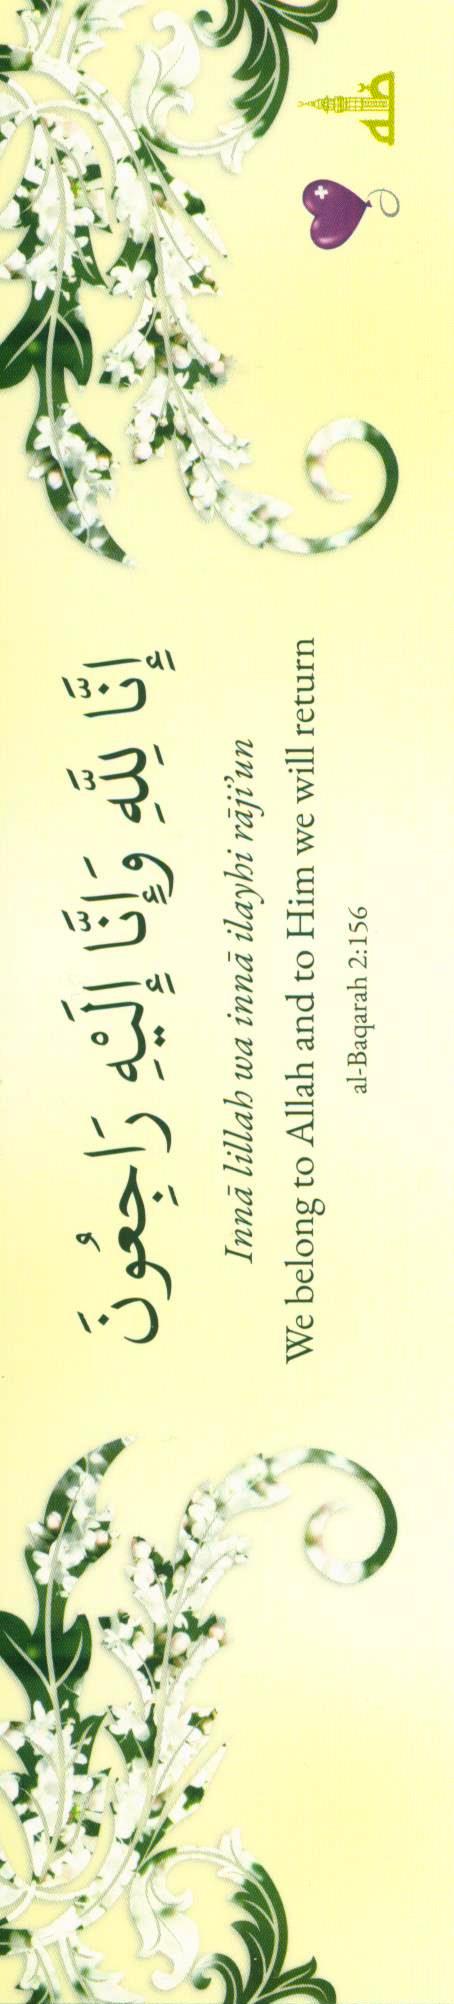 إِنَّا لِلَّهِ وَإِنَّا إِلَيْهِ رَاجِعُونَ
Innā lillah wa innā ilayhi rāji’un
We belong to Allah and to Him we will return
al-Baqarah 2:156